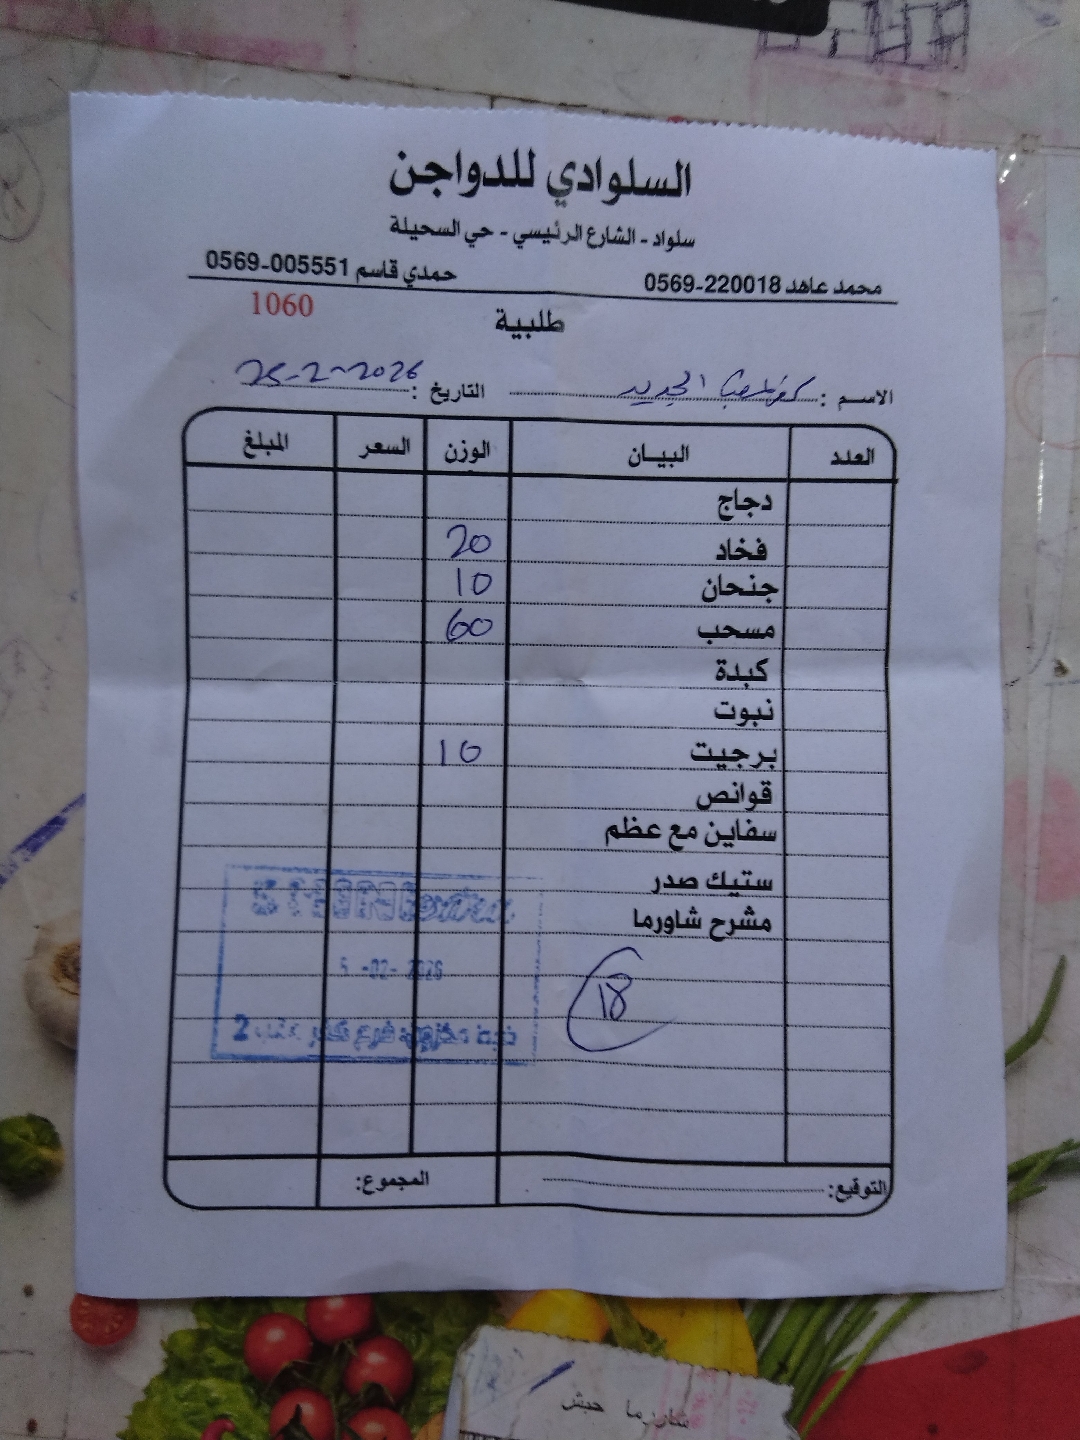 السلوادي للدواجن
سلواد - الشارع الرئيسي - حي السحيلة
محمد عاهد 0569-220018 حمدي قاسم 0569-005551
1060
طلبية
الاسم : الجديد التاريخ : 25-2-2026
العدد البيان الوزن السعر المبلغ
دجاج
فخاد 20
جنحان 10
مسحب 60
كبدة
نبوت
برجيت 10
قوانص
سفاين مع عظم
ستيك صدر
مشرح شاورما
5 -02- 2026
18
فرع 2
التوقيع: المجموع:
شاورما حبش